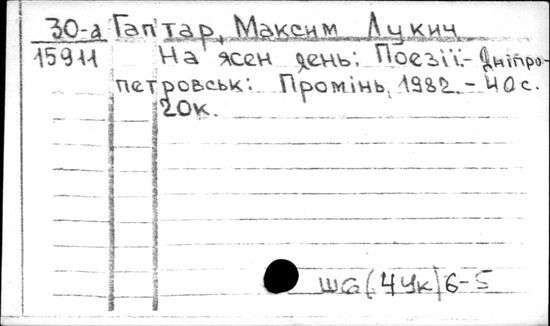 30-а Гаптар, Максим Лукич
15911 На ясен день: Поезії.- Дніпро-
петровськ: Промінь, 1982. - 40 с.
20к.
Ш6(4Ук)6-5